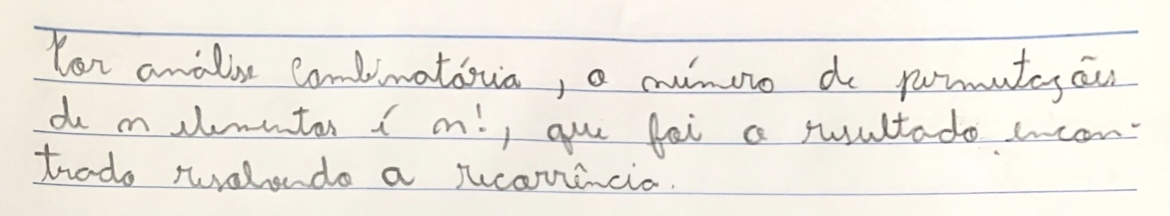 Por análise combinatória, o número de permutações
de n elementos é n!, que foi o resultado encon-
trado resolvendo a recorrência.